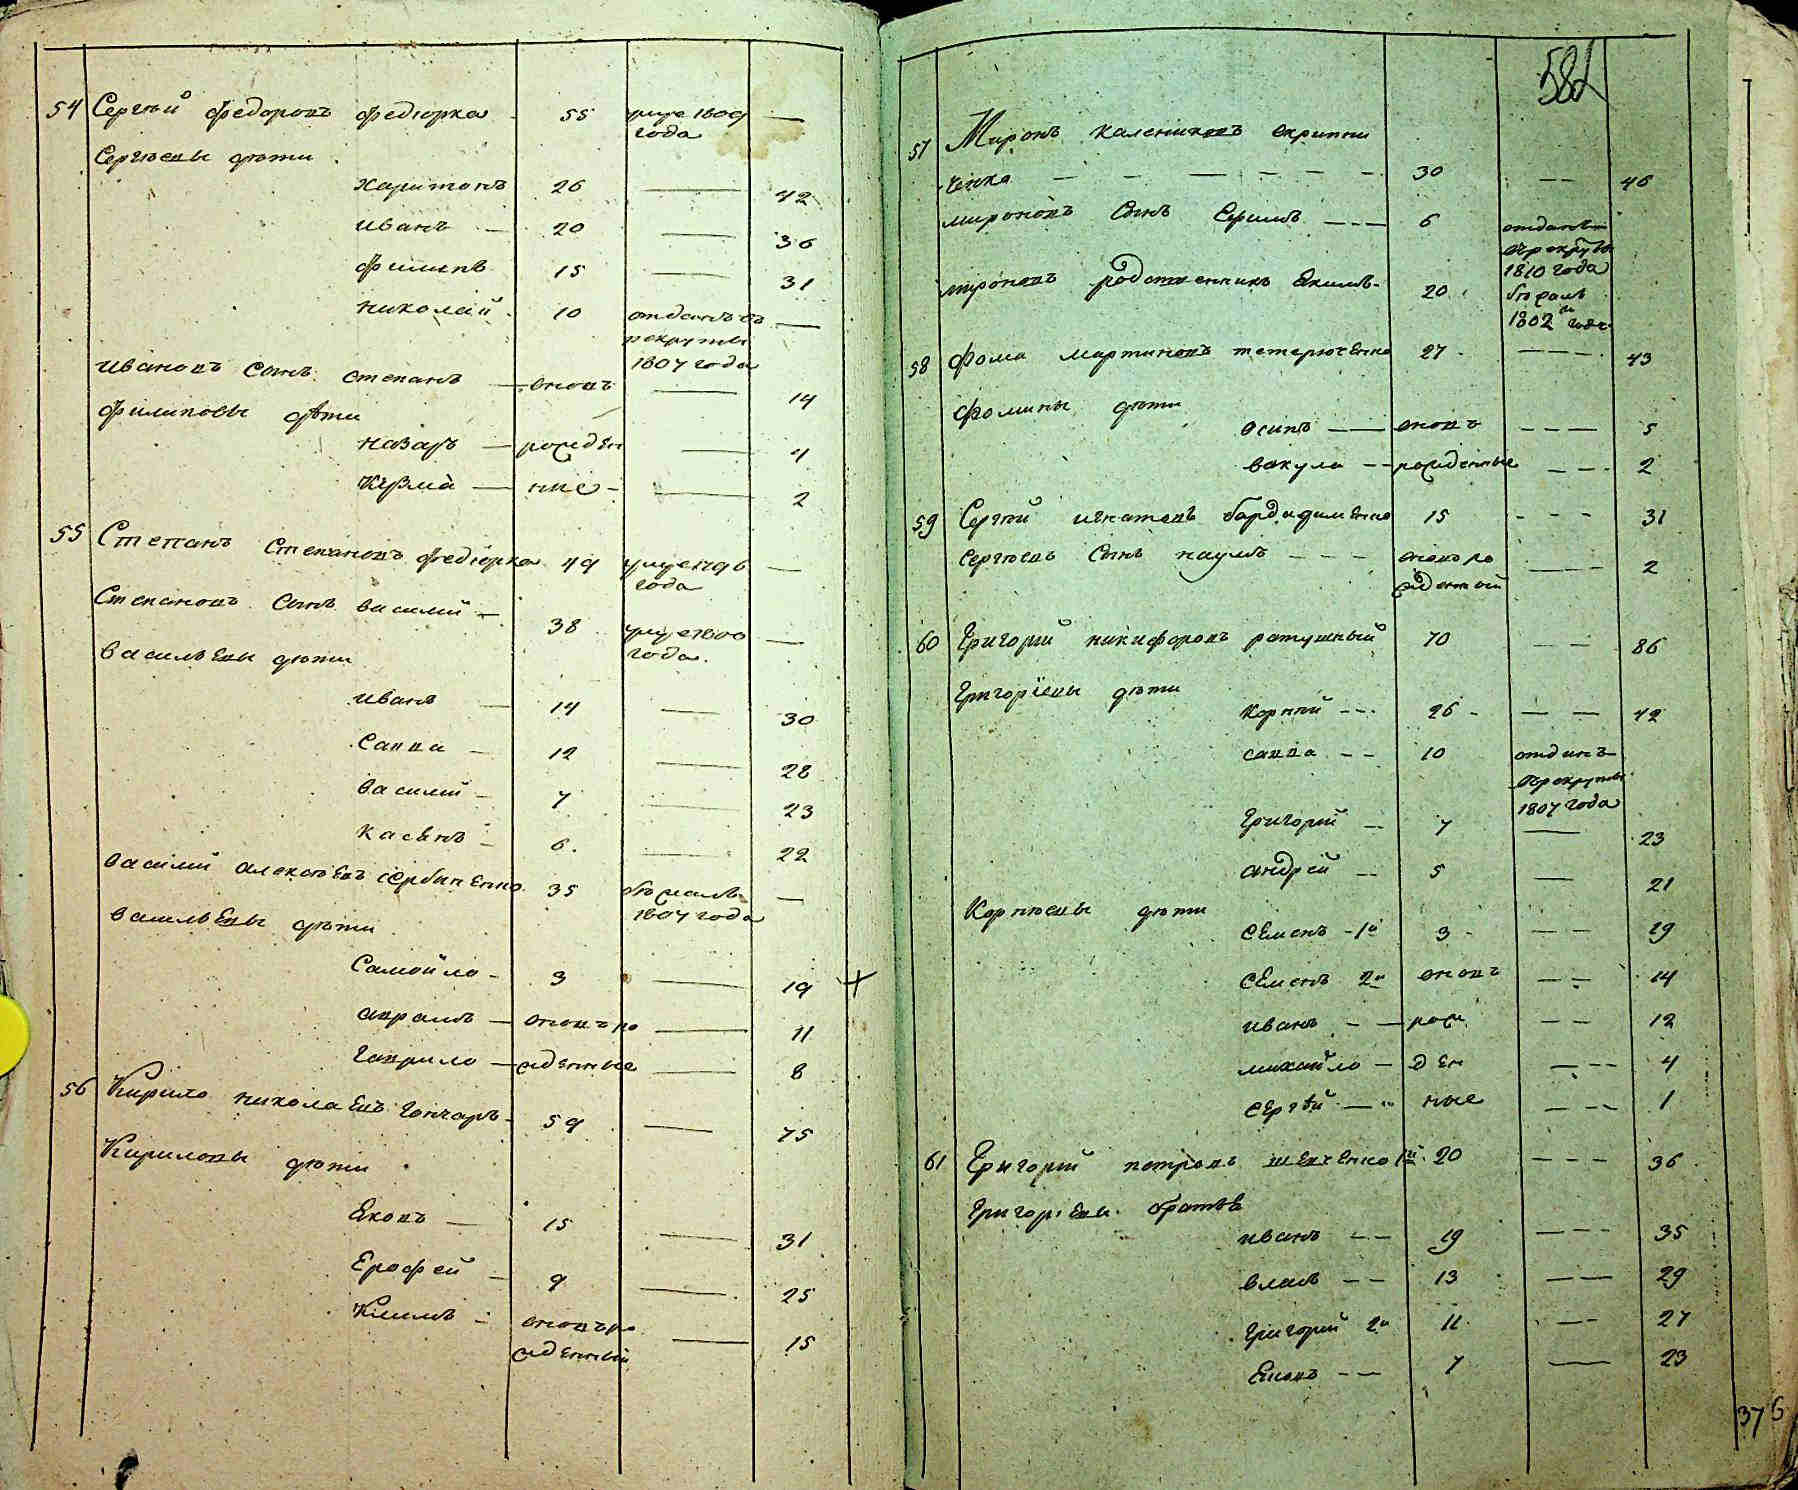 54 Сергѣй Федоровъ Федюрка 55 умре 1809 —
года
Сергѣевы дѣти
Харитонъ 26 — 42
Иванъ — 20 — 36
Филипъ 15 — 31
Николай 10 отданъ въ —
рекруты
1807 года
Ивановъ сынъ Степанъ — вновь — 14
Филиповы дѣти
Назаръ — рожден — 4
Кузма — ние — 2
55 Степанъ Степановъ Федюрка 49 умре 1796 —
года
Степановъ сынъ Василий — 38 умре 1800 —
года.
Васильевы дѣти
Иванъ — 14 — 30
Савва — 12 — 28
Василий — 7 — 23
Касянъ — 6. — 22
Василий Алексѣевъ Сербиненко 35 бѣжалъ —
1807 года
Васильевы дѣти
Самойло — 3 — 19
Аврамъ — вновь ро — 11
Гаврило — жденные — 8
56 Кирило Николаевъ Гончаръ — 59 — 75
Кириловы дѣти
Яковъ — 15 — 31
Ерофей — 9 — 25
Климъ — вновь ро — 15
жденный
582
57 Миронъ Калениковъ Скрипни
ченко — — — — — — 30 — — 46
Мироновъ сынъ Ефимъ — — — 6 отданъ
въ рекруты
1810 года
Мироновъ родственникъ Якимъ — 20 бѣжалъ
1802 года
58 Фома Мартиновъ Тетерюченко 27 — — — 43
Фомины дѣти
Осипъ — — вновь — — — 5
Вакула — — рожденные — — — 2
59 Сергѣй Игнатовъ 15 — — — 31
Сергѣевъ сынъ Наумъ — — — вново ро — — — 2
жденный
60 Григорий Никифоровъ Ратушный 70 — — 86
Григорїевы дѣти
Корнѣй — — 26 — — — 42
Савва — — 10 отданъ
въ рекруты
1807 года
Григорий — 7 — 23
Андрей — 5 — 21
Корнѣевы дѣти
Семенъ — 1й 3 — — — 19
Семенъ 2й вновь — — 14
Иванъ — — рож — — 12
Михайло — ден — — — 4
Сергѣй — ные — — — 1
61 Григорий Петровъ Шевченко 1й 20 — — — 36
Григорьевы братья
Иванъ — — 19 — — — 35
Власъ — — 13 — — 29
Григорий 2й 11 — — 27
Яковъ — — 7 — 23
376